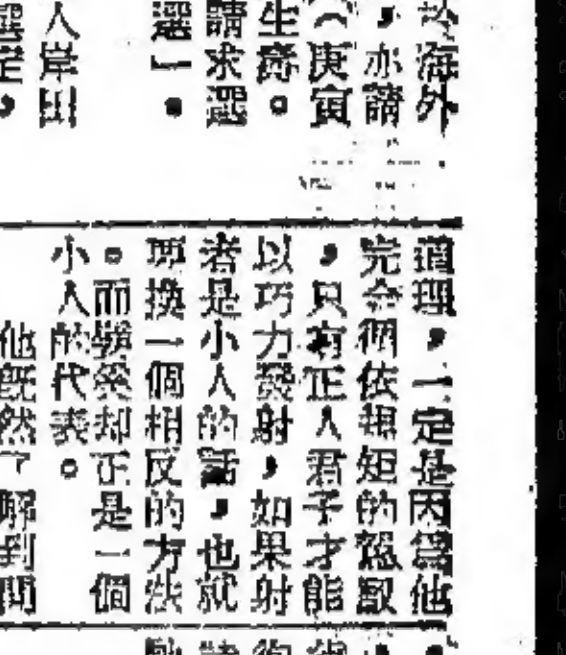 於海外
,亦請
(庚寅
生肖。
請求選
選」。
人岸田
選定,
道理,一定是因為他
完全依規矩的駕馭
,只有正人君子才能
以巧力發射,如果射
者是小人的話,也就
換一個相反的方法
。而嬖奚却正是一個
小人的代表。
他既然了解到問